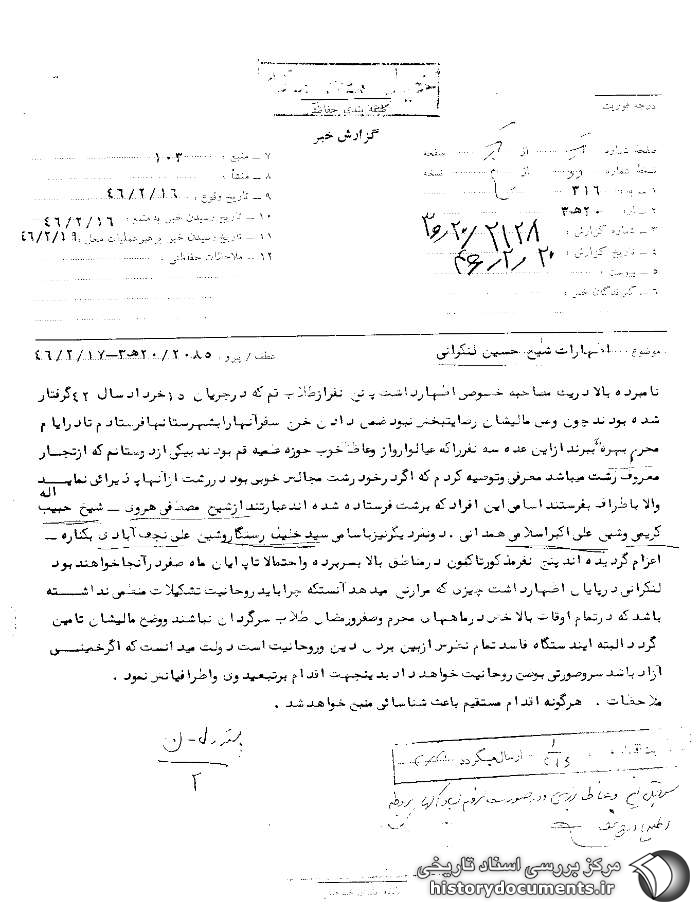 طبقه بندی حفاظتی
درجه فوریت
گزارش خبر
صفحه شماره از صفحه
نسخه شماره از نسخه
۱ـ به : ۳۱۶
۲ـ از : ۲۰ه۳
۳ ـ شماره گزارش :
۴ ـ تاریخ گزارش :
۵ ـ پیوست :
۶ ـ گیرندگان خبر :
۷ ـ منبع : ۱۰۳
۸ ـ منشأ :
۹ ـ تاریخ وقوع : ۴۶/۲/۱۶
۱۰ ـ تاریخ رسیدن خبر به منبع : ۴۶/۲/۱۶
۱۱ ـ تاریخ رسیدن خبر برهبر عملیات محل : ۴۶/۲/۱۹
۱۲ ـ ملاحظات حفاظتی :
موضوع : اظهارات شیخ حسین لنکرانی عطف / پیرو : ۲۰/۲۰۸۵ه۳-۴۶/۲/۱۷
نامبرده بالا دریک مصاحبه خصوصی اظهارداشت پنج نفرازطلاب قم که درجریان ۱۵خرداد سال ۴۲گرفتار
شده بودند چون وضع مالیشان رضایتبخش نبود ضمن دادن خرج سفرآنهارابشهرستانهافرستادم تادرایام
محرم بهره ببرند ازاین عده سه نفرراکه عیالوارواز وعاظ خوب حوزه علمیه قم بودند بیکی ازدوستانم که ازتجار
معروف رشت میباشد معرفی وتوصیه کردم که اگردرخود رشت مجالس خوبی بود دررشت ازآنها پذیرائی نمایند
والا باطراف بفرستند اسامی این افراد که برشت فرستاده شده اندعبارتند ازشیخ مصطفی هروی ـ شیخ حبیب اله
کریمی وشیخ علی اکبراسلامی همدانی . دونفردیگرنیزباسامی سید خلیل رستگاروشیخ علی نجف آبادی بکناره ـ
اعزام گردیده اند پنج نفرمذکورتاکنون درمناطق بالا بسربرده واحتمالا تاپایان ماه صفردرآنجاخواهند بود
لنکرانی درپایان اظهارداشت چیزی که مرارنج میدهد آنستکه چراباید روحانیت تشکیلات منظمی نداشته
باشد که درتمام اوقات بالاخص درماههای محرم وصفرورمضان طلاب سرگردان نباشند ووضع مالیشان تامین
گردد البته ایندستگاه فاسد تمام نظرش ازبین بردن دین وروحانیت است دولت میدانست که اگرخمینی
آزاد باشد سروصورتی بوضع روحانیت خواهد داد بدینجهت اقدام برتبعید وی واطرافیانش نمود .
ملاحظات . هرگونه اقدام مستقیم باعث شناسائی منبع خواهد شد .
ارسال میگردد
مرکز بررسی اسناد تاریخی
historydocuments.ir